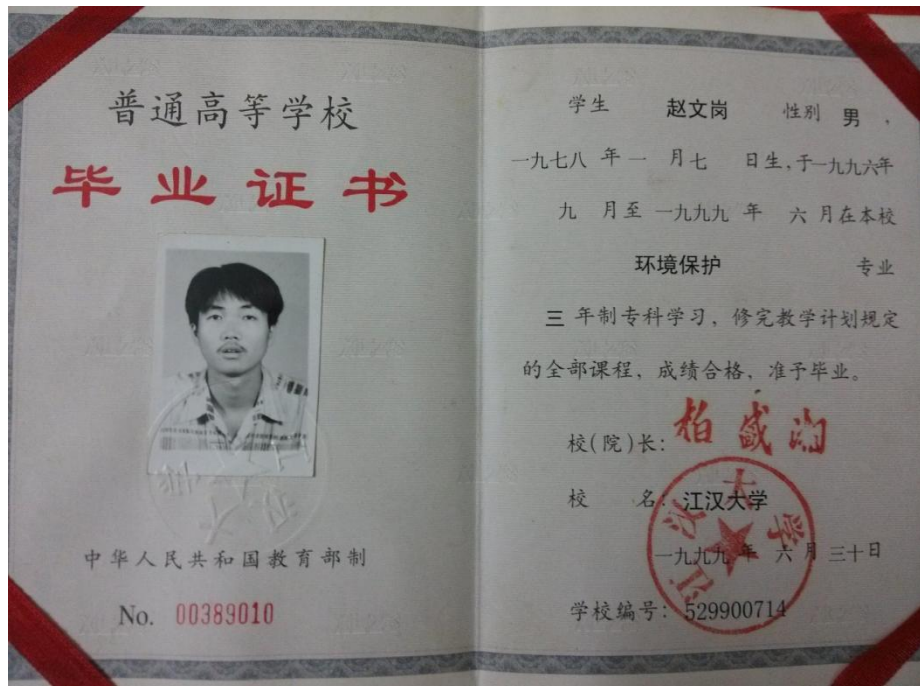 普通高等学校
毕业证书
中华人民共和国教育部制
No. 00389010
学生 赵文岗 性别 男，
一九七八 年 一 月 七 日生，于 一九九六年
九 月至 一九九九 年 六 月在本校
环境保护 专业
三 年制专科学习，修完教学计划规定
的全部课程，成绩合格，准予毕业。
校(院)长：柏盛湘
校 名：江汉大学
一九九九 年 六 月 三十日
学校编号：529900714
江汉大学